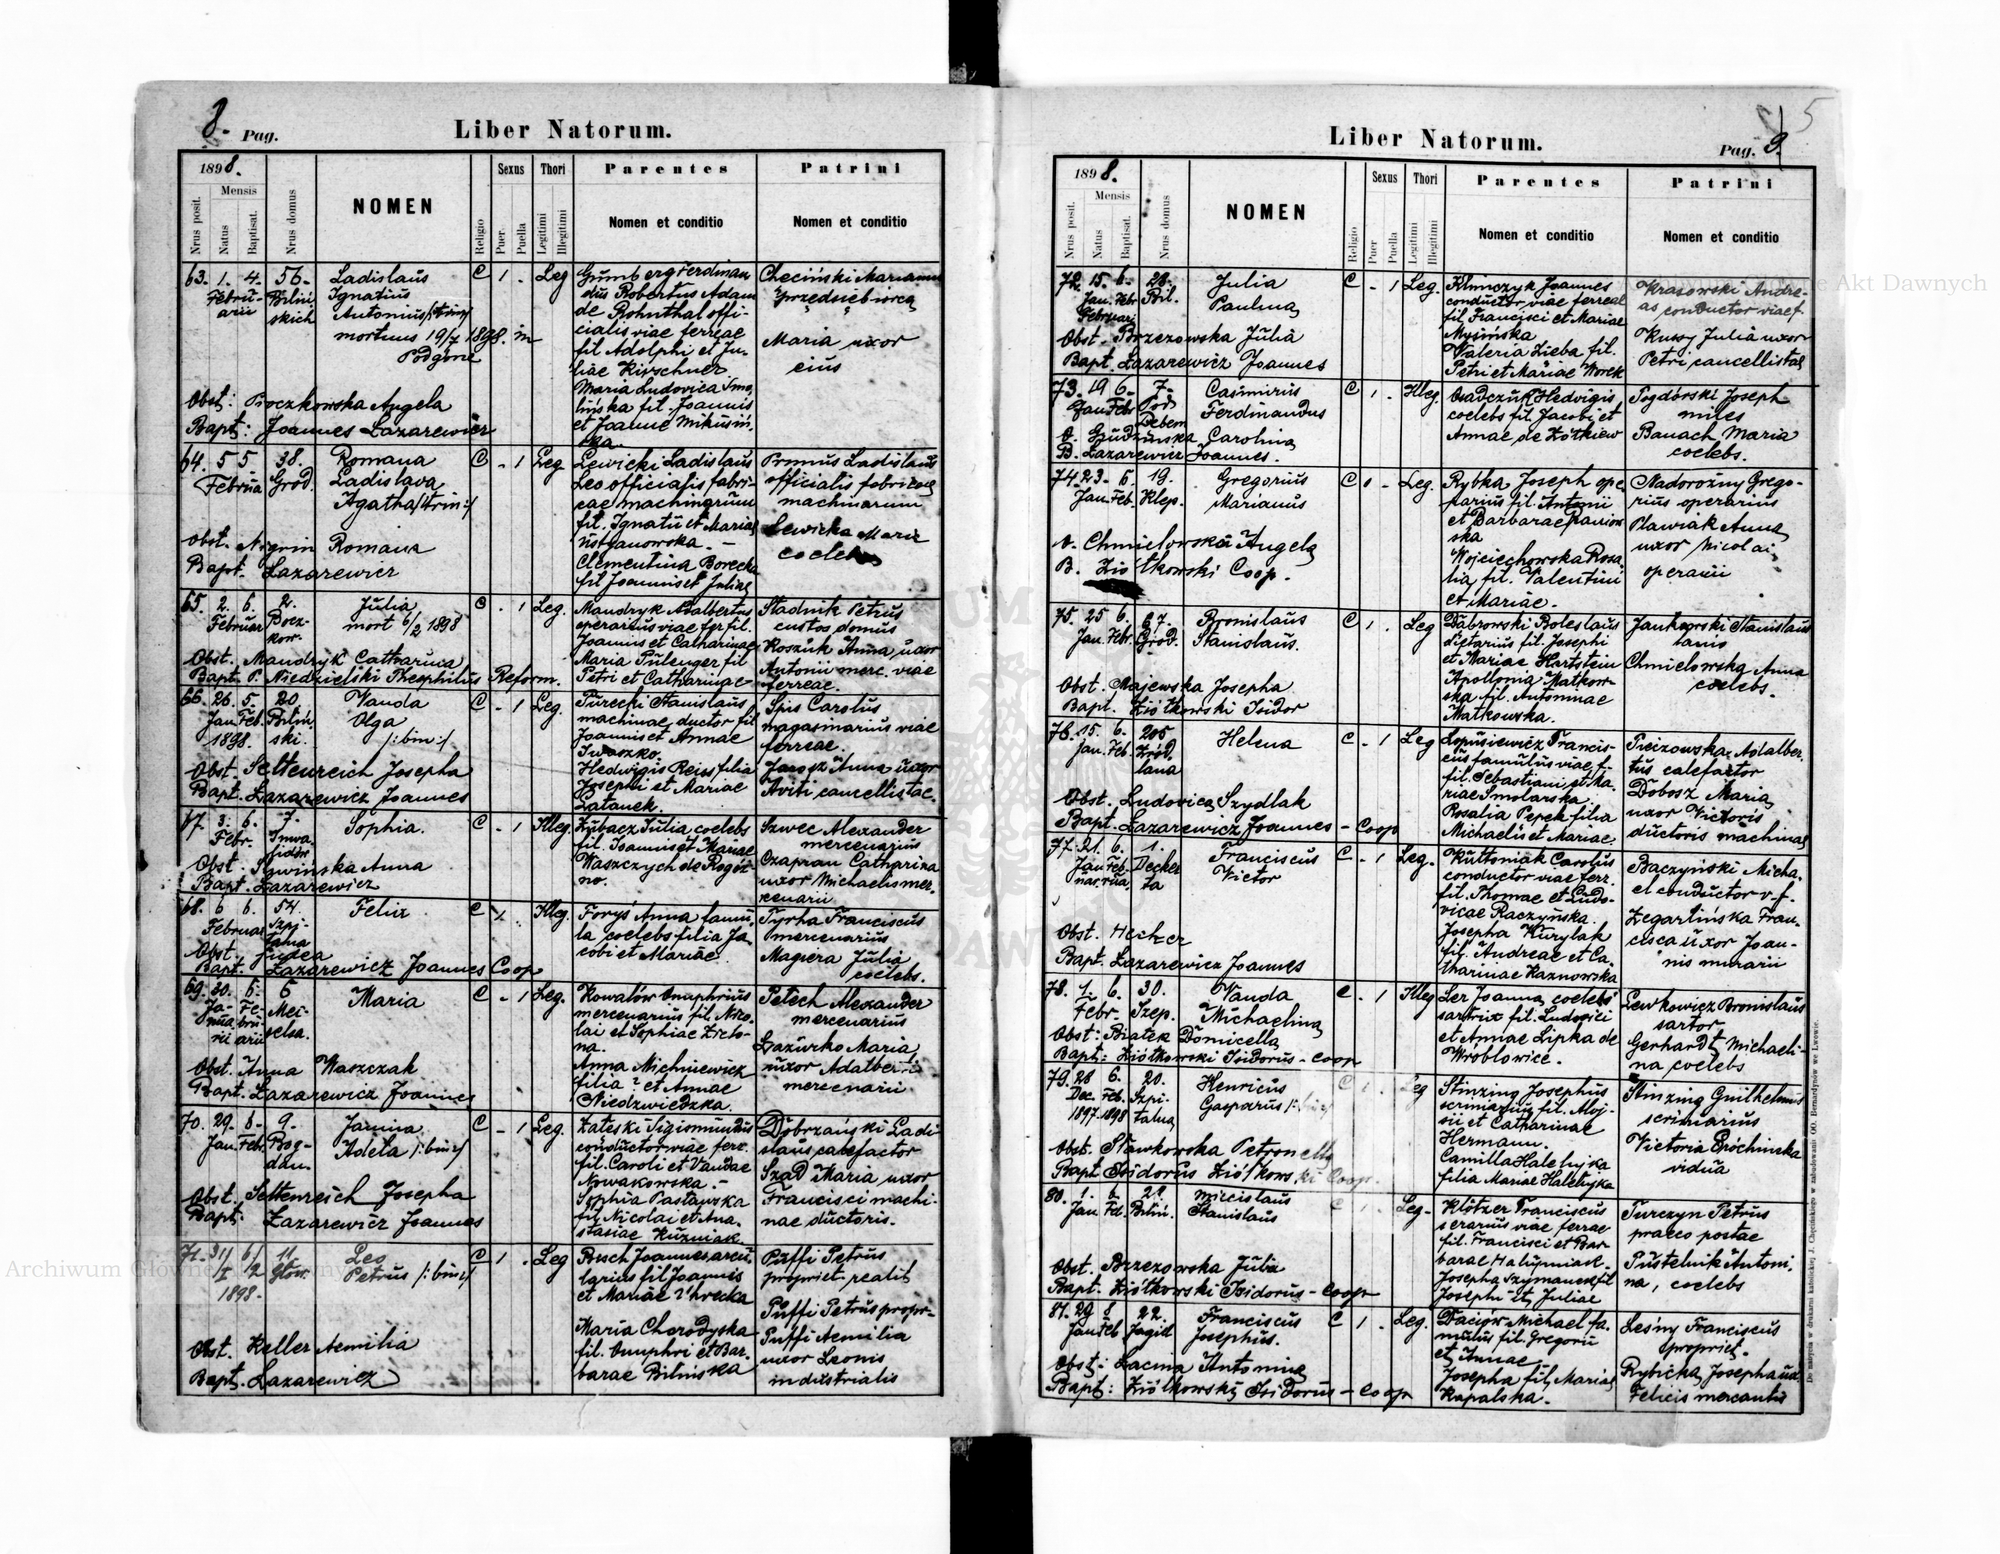 8. Pag.
Liber Natorum.
1898.
Mensis
Nrus posit.
Natus
Baptisat.
Nrus domus
NOMEN
Religio
Sexus
Puer
Puella
Thori
Legitimi
Illegitimi
Parentes
Nomen et conditio
Patrini
Nomen et conditio
63. 1. 4. 56.
Februarii
Ladislaus
Ignatius
Antonius
mortuus 19/7 1898. in
Podgorze
C 1 . Leg
Gumberg Ferdinan
dus Robertus Adam
de Rohnthal offi-
cialis viae ferreae
fil Adolphi et Ju-
liae Kirschner
Maria Ludovica Smo
lińska fil. Joannis
et Joanne
Checiński Marianus
przedsiębiorca
Maria uxor
eius
Obst: Proczkowska Angela
Bapt: Joannes Lazarewicz
64. 5 5 38.
Februa Grod.
Romana
Ladislava
Agatha /:trin:/
C . 1 Leg
Lewicki Ladislaus
Leo officialis fabri-
cae machinarum
fil. Ignatii et Mariae
Ustyanowska. -
Clementina Borecka
fil Joannis et Juliae
Primus Ladislaus
officialis fabricae
machinarum
Lewicka Maria
coelebs
Obst. Nigrin Romana
Bapt. Lazarewicz
65. 2. 6. 2.
Februar
Julia
mort 6/2 1898
C . 1 Leg.
Mandryk Adalbertus
operarius viae fer fil.
Joannis et Catharinae
Maria Pulenger fil
Petri et Catharinae
Stadnik Petrus
custos domus
Koszuk Anna uxor
Antonii merc. viae
ferreae.
Obst. Mandryk Catharina
Bapt. P. Niedzielski Theophilus Reform.
66. 26. 5. 20
Jan. Feb. Biliń
1898. ski.
Vanda
Olga
/:bin:/
C . 1 Leg.
Turecki Stanislaus
machinae ductor fil
Joannis et Annae
Iwaszko.
Hedvigis Reiss filia
Josephi et Mariae
Latanek.
Spis Carolus
magasinarius viae
ferreae.
Jarosz Anna uxor
Aviti cancellistae.
Obst. Settenreich Josepha
Bapt. Lazarewicz Joannes
67 3. 6. 7.
Febr.
Sophia.
C . 1 Illeg.
Zubacz Julia coelebs
fil. Joannis et Mariae
Waszczych de Rogoź
no.
Szwec Alexander
mercenarius
Czapran Catharina
uxor Michaelis mer.
cenarii
Obst. Anna
Bapt. Lazarewicz
68. 6 6. 54
Februar Szpi-
talna
Felix
C 1. Illeg.
Foryś Anna famu
la coelebs filia Ja
cobi et Mariae.
Tyrha Franciscus
mercenarius
Magiera Julia
coelebs.
Obst. judea
Bapt. Lazarewicz Joannes Coop
69. 30. 6. 6
Maria
C . 1 Leg.
Kowalów Onuphrius
mercenarius fil. Nico
lai et Sophiae
na.
Anna Michniewicz
filia ? et Annae
Niedzwiedzka.
Petech Alexander
mercenarius
Lazurko Maria
uxor Adalberti
mercenarii
Obst. Anna Waszczak
Bapt. Lazarewicz Joannes
70. 29. 8. 9.
Jan. Febr. Bog-
dan.
Janina
Adela /:bin:/
C . 1 Leg.
Zaleski Sigismundus
conductor viae ferr.
fil. Caroli et Vandae
Nowakowska. -
Sophia Pasławska
fil. Nicolai et Ana.
stasiae Kuzniak.
Dobrzański Ladi
slaus calefactor
Szad Maria uxor
Francisci machi-
nae ductoris.
Obst. Settenreich Josepha
Bapt. Lazarewicz Joannes
71. 31/I 6/2 11
1898. Głow.
Leo
Petrus /:bin:/
C 1 . Leg
Besch Joannes arcu
larius fil Joannis
et Mariae
Maria Chorodyska
fil. Onuphri et Bar.
barae Bilińska
Puffi Petrus
propriet. realit
Puffi Petrus propr.
Puffi Aemilia
uxor Leonis
industrialis
Obst. Keller Aemilia
Bapt. Lazarewicz
Liber Natorum.
Pag. 9.
5
1898.
Mensis
Nrus posit.
Natus
Baptisat.
Nrus domus
NOMEN
Religio
Sexus
Puer
Puella
Thori
Legitimi
Illegitimi
Parentes
Nomen et conditio
Patrini
Nomen et conditio
72. 15. 6. 28.
Jan. Febr Bil.
Februari
Julia
Paulina
C . 1 Leg.
Klimczyk Joannes
conductor viae ferreae
fil Francisci et Mariae
Mysińska
Valeria Zieba fil.
Petri et Mariae Worek
Krasowski Andre-
as conductor viae f.
Kussy Julia uxor
Petri cancellistae
Obst. Brzezowska Julia
Bapt. Lazarewicz Joannes
73. 19 6. 7.
Jan Febr Pod
Debem
Casimirus
Ferdinandus
C 1 . Illeg.
Hedvigis
coelebs fil. Jacobi et
Annae de Żółkiew
Pogdórski Joseph
miles
Banach Maria
coelebs.
O. Gudzinska Carolina
B. Lazarewicz Joannes.
74. 23. 6. 19.
Jan. Feb. Klep.
Gregorius
Marianus
C . Leg.
Rybka Joseph ope
rarius fil. Antonii
et Barbarae Paniow
ska
Wojciechowska Rosa
lia, fil. Valentini
et Mariae.
Nadorożny Grego-
rius operarius
Plawiak Anna
uxor Nicolai
operarii
O. Chmielowska Angela
B. Ziółkowski Coop.
75. 25 6. 67.
Jan. Febr. Grod.
Bronislaus
Stanislaus.
C 1 . Leg
Dąbrowski Boleslaus
dietarius fil. Josephi
et Mariae Hartstein
Apollonia Matkow-
ska fil. Antoninae
Matkowska.
Jankowski Stanislaus
Chmielowska Anna
coelebs.
Obst. Majewska Josepha
Bapt. Ziółkowski Isidor
76. 15. 6. 205
Jan. Feb.
Helena
C . 1 Leg
Łopusiewicz Francis-
cus famulus viae f.
fil. Sebastiani et Ma
riae Smolarska.
Rosalia Pepek filia
Michaelis et Mariae.
Adalber
tus calefactor
Dobosz Maria
uxor Victoris
ductoris machinae
Obst. Ludovica Szydlak
Bapt. Lazarewicz Joannes - Coop
77. 21. 6. 1.
Franciscus
Victor
C . 1 Leg.
Kuttoniak Carolus
conductor viae ferr.
fil. Thomae et Ludo-
vicae Raczyńska.
Josepha Kurylak
fil. Andreae et Ca.
tharinae Kaznowska
Baczyński Micha.
el conductor v. f.
Zegartińska Fran-
cisca uxor Joan-
nis murarii
Obst. Hecker
Bapt. Lazarewicz Joannes
78. 1. 6. 30.
Febr. Szep.
Vanda
Michaelina
C . 1 Illeg
Ler Joanna coelebs
sartrix fil. Ludovici
et Annae Lipka de
Wróblowice.
Lewkowicz Bronislaus
sartor
Gerhardt Michaeli-
na coelebs
Obst: Białek Domicella
Bapt: Ziółkowski Isidorus - Coop
79. 28 6. 20.
Dec. Feb. Szpi-
1897. 1898 talna
Henricus
Gasparus /:bin:/
C 1 . Leg
Stinzing Josephus
scriniarius fil. Aloj-
sii et Catharinae
Hermann.
Camilla Halehyka
filia Mariae Halehyka
Stinzing Guilhelmus
scriniarius
Victoria Prochinska
vidua
Obst. Sławkowska Petronella
Bapt Isidorus Ziółkowski Coop.
80. 1. 6. 21.
Jan. Feb. Biliń.
Miecislaus
Stanislaus
C 1 . Leg.
Klötzer Franciscus
serarius viae ferreae
fil. Francisci et Bar
barae
Josepha Szymanek fil
Josephi et Juliae
Turczyn Petrus
praeco postae
Pustelnik Antoni.
na, coelebs
Obst. Brzezowska Julia
Bapt. Ziółkowski Isidorus - Coop
81. 29 8 22.
Jan Feb Jagiel
Franciscus
Josephus.
C 1 . Leg.
Michael fa.
mulus fil. Gregorii
et Annae
Josepha fil. Mariae
Kapalska.
Leśny Franciscus
propriet.
Rybicka Josepha ux.
Felicis mercantis
Obst: Lacina Antonina
Bapt: Ziółkowski Isidorus - Coop
Do nabycia w drukarni katolickiej J. Chęcińskiego w zabudowaniu OO. Bernardynów we Lwowie.